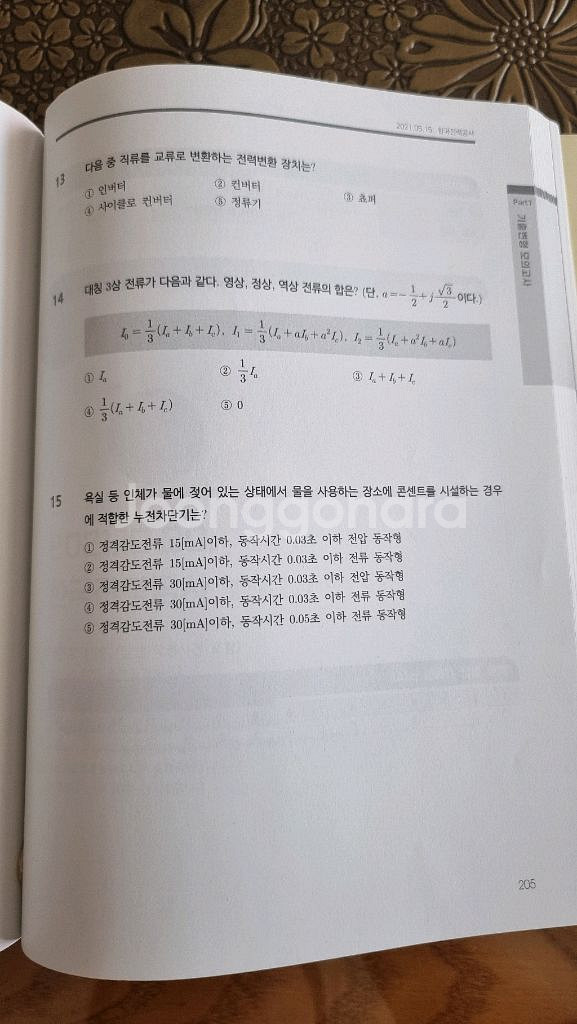 2021.05.15. 한국전력공사
Part1
기출변형 모의고사
13 다음 중 직류를 교류로 변환하는 전력변환 장치는?
① 인버터 ② 컨버터 ③ 쵸퍼
④ 사이클로 컨버터 ⑤ 정류기
14 대칭 3상 전류가 다음과 같다. 영상, 정상, 역상 전류의 합은? (단, a = -1/2 + j√3/2 이다.)
I₀ = 1/3(Iₐ + I_b + I_c), I₁ = 1/3(Iₐ + aI_b + a²I_c), I₂ = 1/3(Iₐ + a²I_b + aI_c)
① Iₐ ② 1/3 Iₐ ③ Iₐ + I_b + I_c
④ 1/3(Iₐ + I_b + I_c) ⑤ 0
15 욕실 등 인체가 물에 젖어 있는 상태에서 물을 사용하는 장소에 콘센트를 시설하는 경우
에 적합한 누전차단기는?
① 정격감도전류 15[mA]이하, 동작시간 0.03초 이하 전압 동작형
② 정격감도전류 15[mA]이하, 동작시간 0.03초 이하 전류 동작형
③ 정격감도전류 30[mA]이하, 동작시간 0.03초 이하 전압 동작형
④ 정격감도전류 30[mA]이하, 동작시간 0.03초 이하 전류 동작형
⑤ 정격감도전류 30[mA]이하, 동작시간 0.05초 이하 전류 동작형
Joonggonara
205